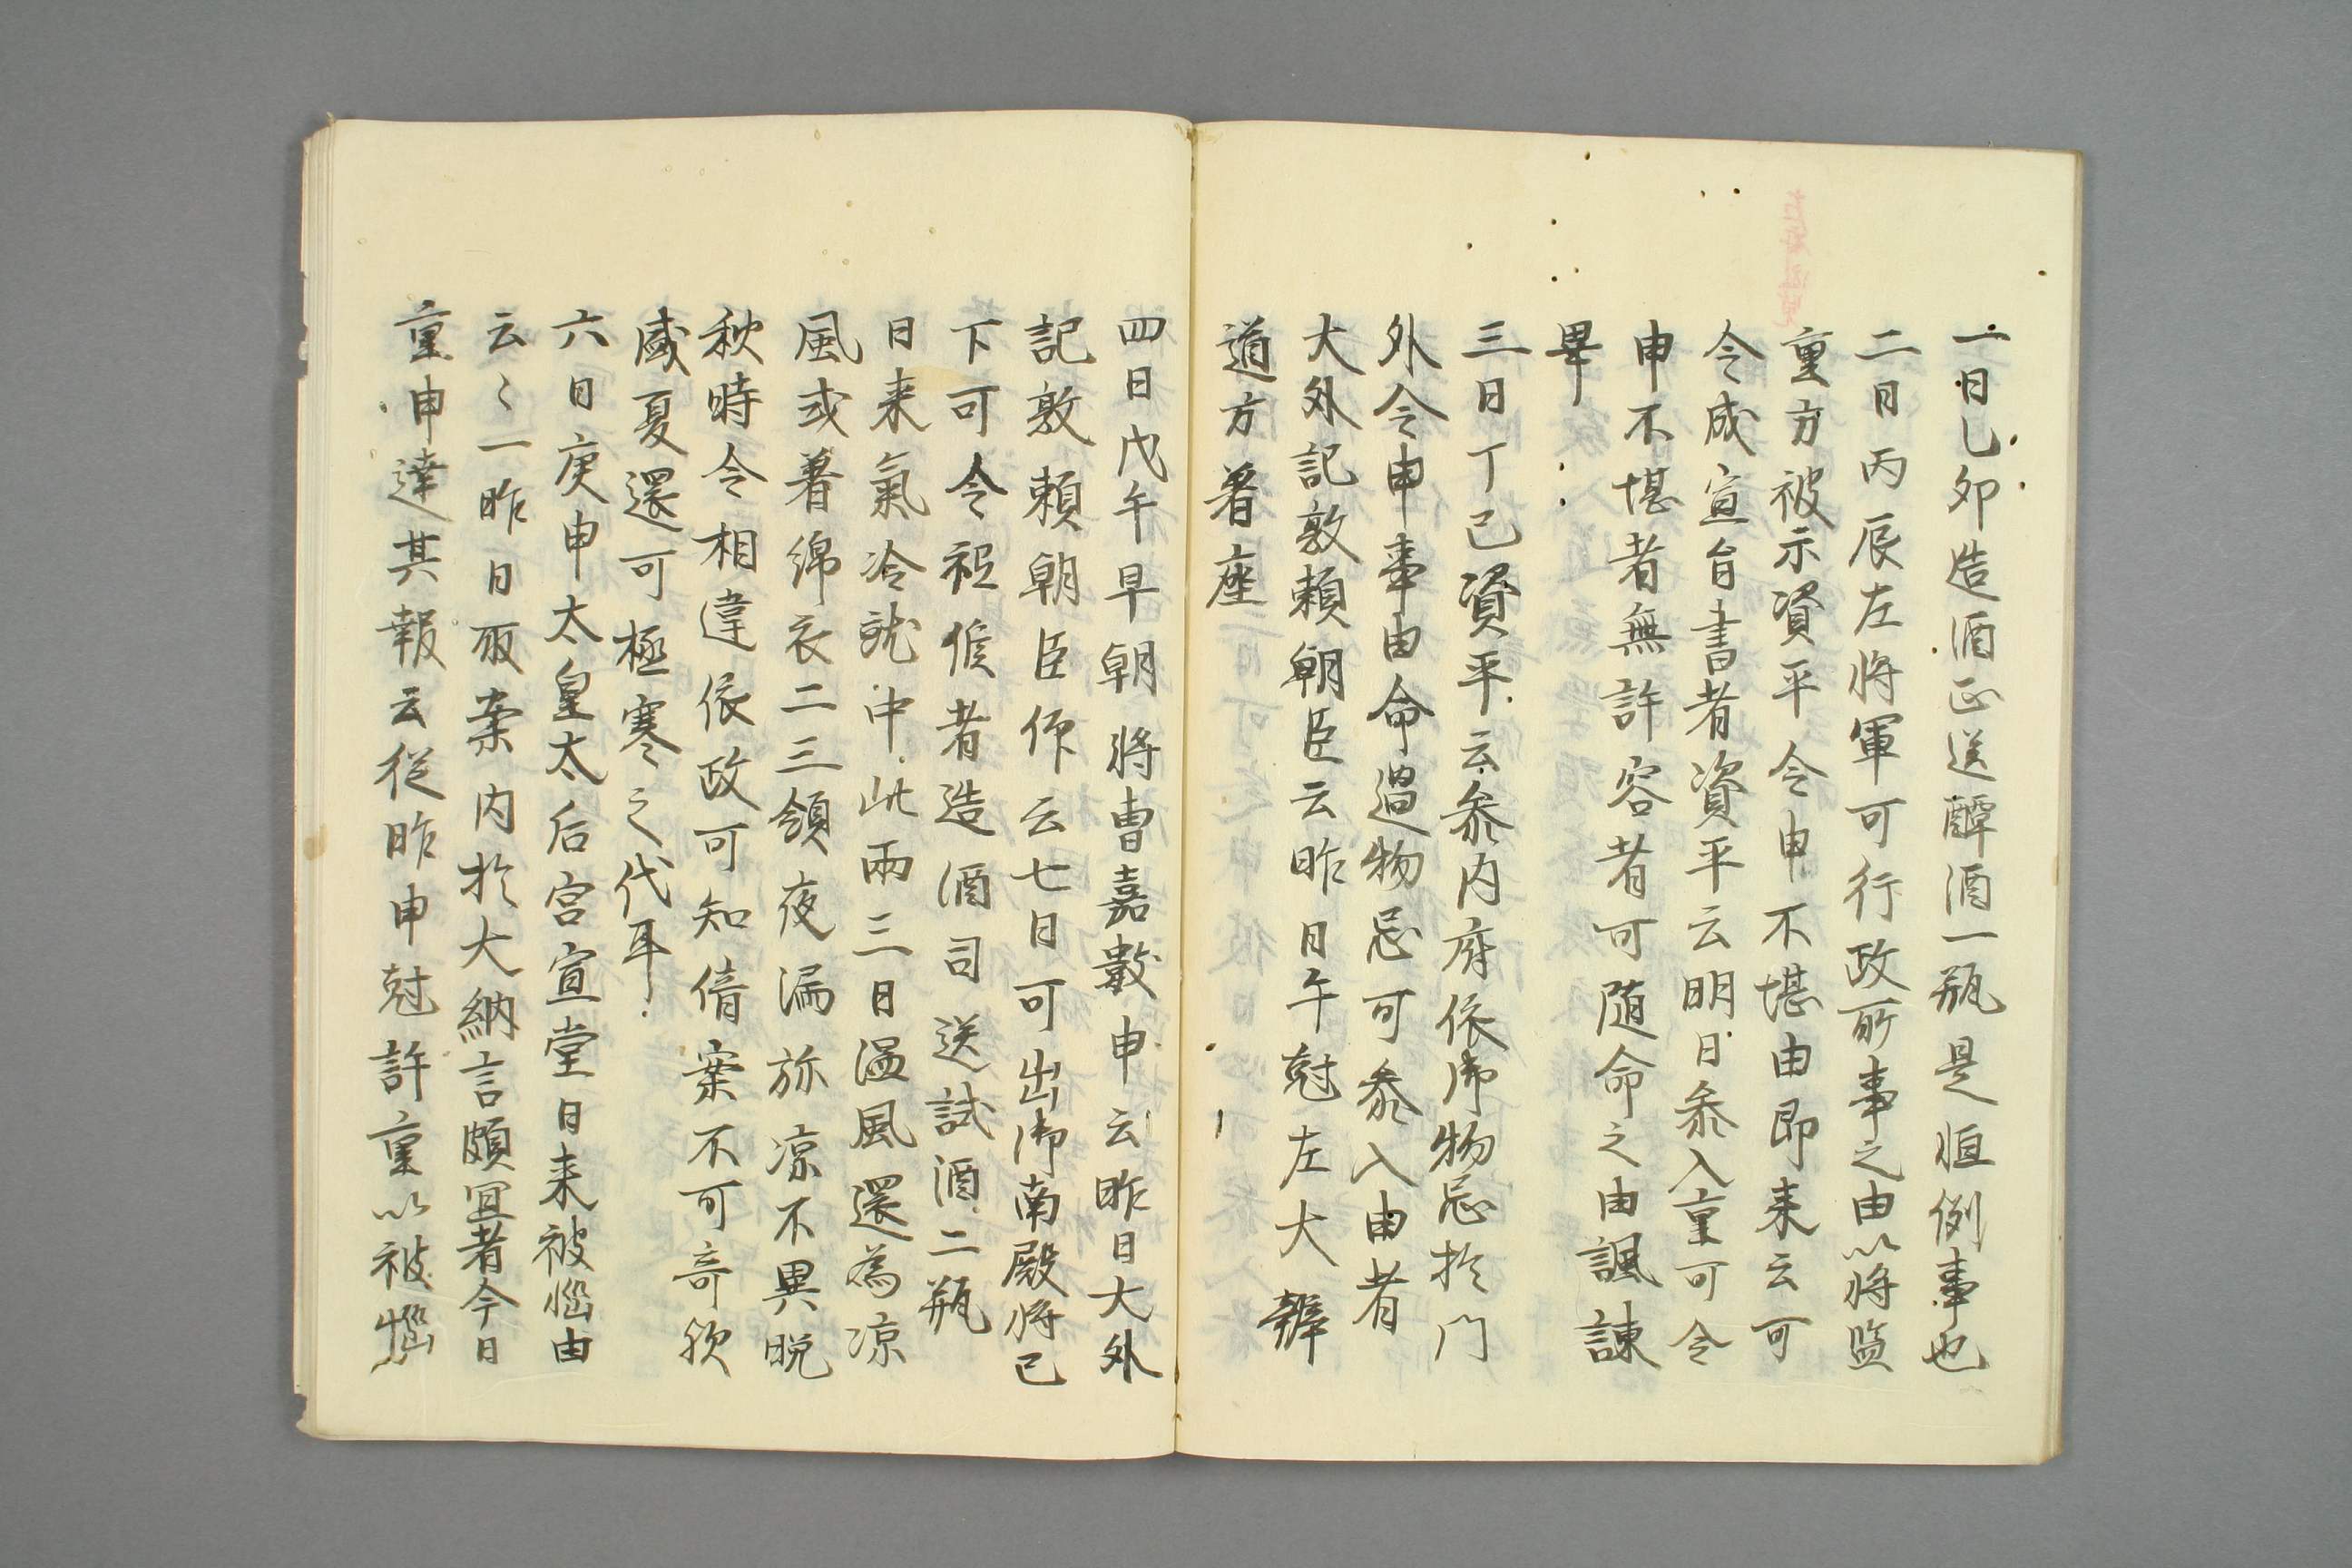 一日乙卯造酒正送醰酒一瓶是恒例事也
二日丙辰左将軍可行政所事之由以将监
重方被示資平令申不堪由即来云可
令成宣旨書者資平云明日参入重可令
申不堪者無許容者可随命之由諷諫
畢
三日丁巳資平云参内府依御物忌於門
外令申事由命過物忌可参入由者
大外記敦頼朝臣云昨日午尅左大辨
道方着座
四日戊午早朝将曹嘉数申云昨日大外
記敦頼朝臣仰云七日可出御南殿将已
下可令祗候者造酒司送試酒二瓶
日来氣冷就中此兩三日温風還為凉
風或着綿衣二三領夜漏弥凉不異晩
秋時令相違依政可知倩案不可奇欤
盛夏還可極寒之代耳
六日庚申太皇太后宮宣堂日来被悩由
云〻一昨日取案内於大納言頗宜者今日
重申達其報云従昨申尅許重以被悩